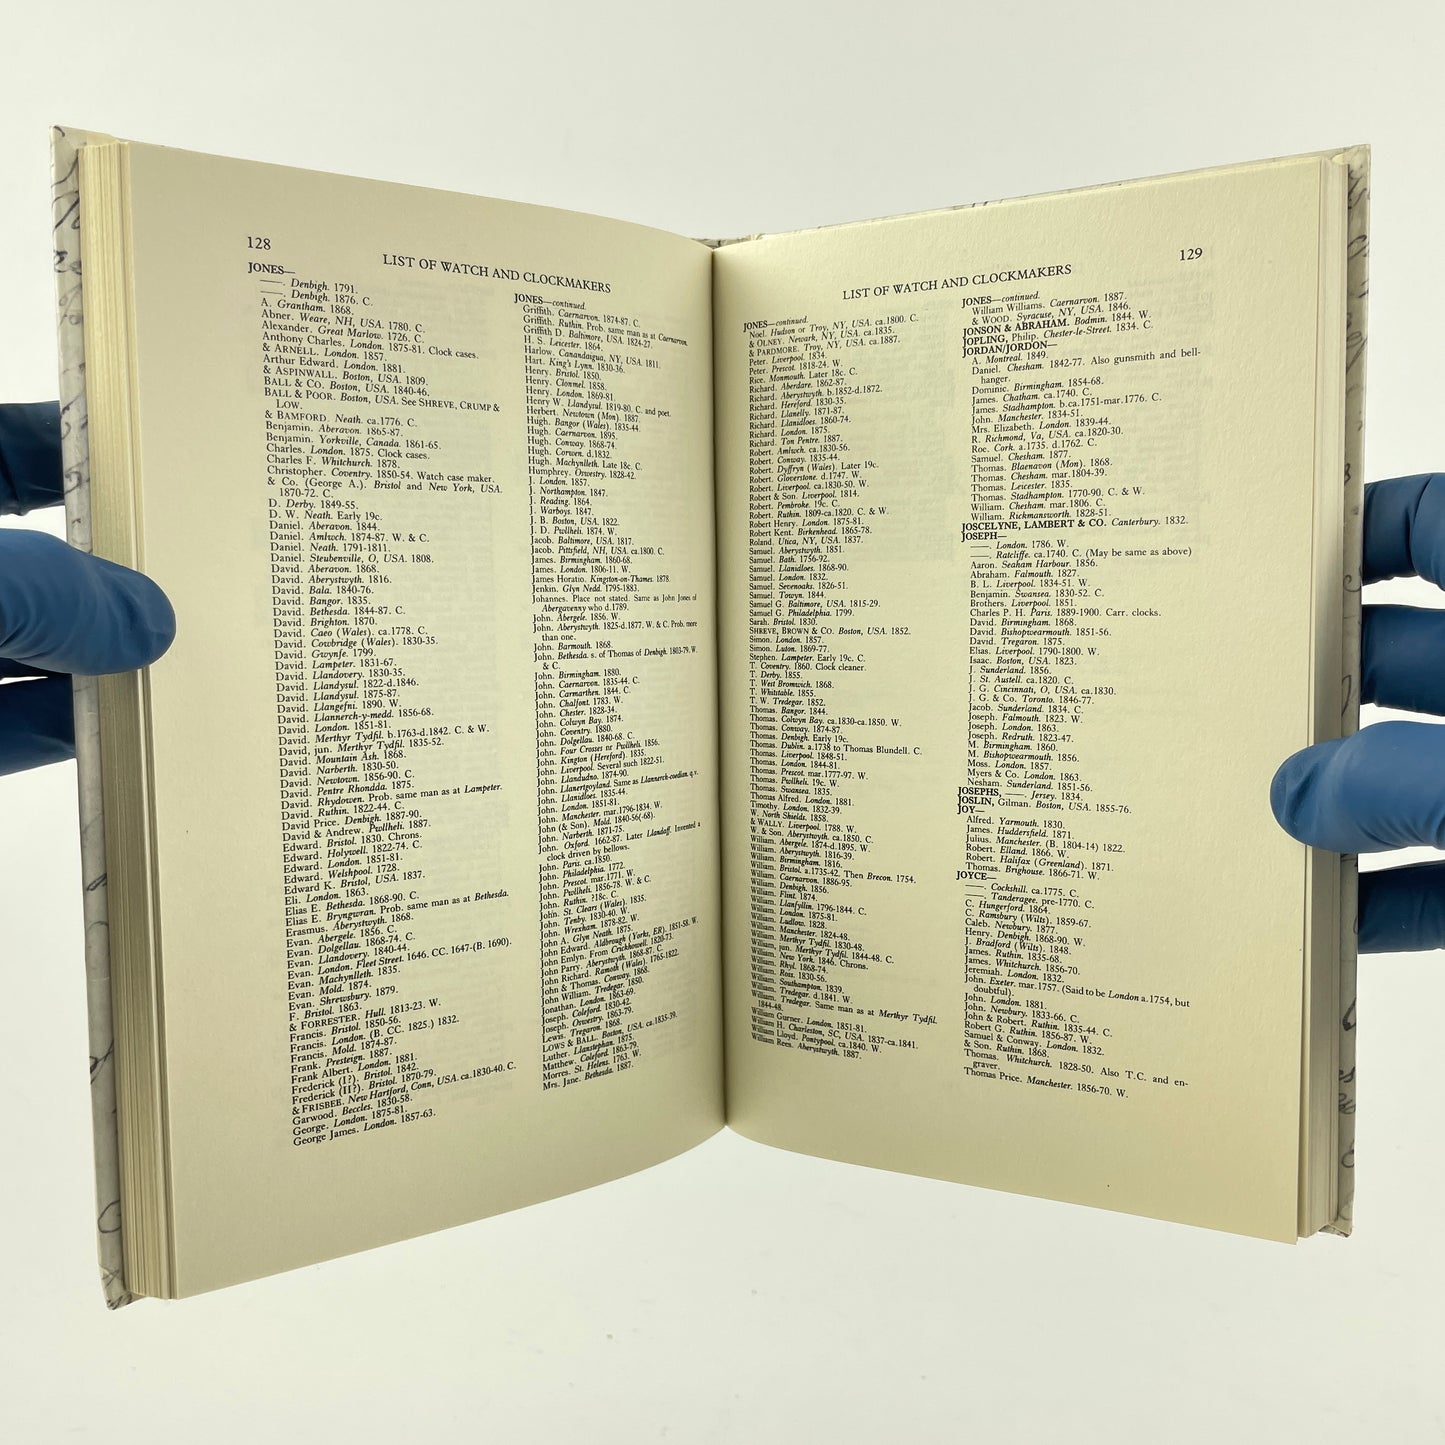 128
LIST OF WATCH AND CLOCKMAKERS
JONES—
——. Denbigh. 1791.
——. Denbigh. 1876. C.
A. Grantham. 1868.
Abner. Weare, NH, USA. 1780. C.
Alexander. Great Marlow. 1726. C.
Anthony Charles. London. 1875-81. Clock cases.
& ARNELL. London. 1857.
Arthur Edward. London. 1881.
& ASPINWALL. Boston, USA. 1809.
BALL & CO. Boston, USA. 1840-46.
BALL & POOR. Boston, USA. See SHREVE, CRUMP &
LOW.
& BAMFORD. Neath. ca.1776. C.
Benjamin. Aberavon. 1865-87.
Benjamin. Yorkville, Canada. 1861-65.
Charles. London. 1875. Clock cases.
Charles F. Whitchurch. 1878.
Christopher. Coventry. 1850-54. Watch case maker.
& Co. (George A.). Bristol and New York, USA.
1870-72. C.
D. Derby. 1849-55.
D. W. Neath. Early 19c.
Daniel. Aberavon. 1844.
Daniel. Amlwch. 1874-87. W. & C.
Daniel. Neath. 1791-1811.
Daniel. Steubenville, O, USA. 1808.
David. Aberavon. 1868.
David. Aberystwyth. 1816.
David. Bala. 1840-76.
David. Bangor. 1835.
David. Bethesda. 1844-87. C.
David. Brighton. 1870.
David. Caeo (Wales). ca.1778. C.
David. Cowbridge (Wales). 1830-35.
David. Gwynfe. 1799.
David. Lampeter. 1831-67.
David. Llandovery. 1830-35.
David. Llandysul. 1822-d.1846.
David. Llandysul. 1875-87.
David. Llangefni. 1890. W.
David. Llannerch-y-medd. 1856-68.
David. London. 1851-81.
David. Merthyr Tydfil. b.1763-d.1842. C. & W.
David, jun. Merthyr Tydfil. 1835-52.
David. Mountain Ash. 1868.
David. Narberth. 1830-50.
David. Newtown. 1856-90. C.
David. Pentre Rhondda. 1875.
David. Rhydowen. Prob. same man as at Lampeter.
David. Ruthin. 1822-44. C.
David Price. Denbigh. 1887-90.
David & Andrew. Pwllheli. 1887.
Edward. Bristol. 1830. Chrons.
Edward. Holywell. 1822-74. C.
Edward. London. 1851-81.
Edward. Welshpool. 1728.
Edward K. Bristol, USA. 1837.
Eli. London. 1863.
Elias E. Bethesda. 1868-90. C.
Elias E. Bryngwran. Prob. same man as at Bethesda.
Erasmus. Aberystwyth. 1868.
Evan. Abergele. 1856. C.
Evan. Dolgellau. 1868-74. C.
Evan. Llandovery. 1840-44.
Evan. London. Fleet Street. 1646. CC. 1647-(B. 1690).
Evan. Machynlleth. 1835.
Evan. Mold. 1874.
Evan. Shrewsbury. 1879.
F. Bristol. 1863.
& FORRESTER. Hull. 1813-23. W.
Francis. Bristol. 1850-56.
Francis. London. (B. CC. 1825.) 1832.
Francis. Mold. 1874-87.
Frank. Presteign. 1887.
Frank Albert. London. 1881.
Frederick (I?). Bristol. 1842.
Frederick (II?). Bristol. 1870-79.
& FRISBEE. New Hartford, Conn, USA. ca.1830-40. C.
Garwood. Beccles. 1830-58.
George. London. 1875-81.
George James. London. 1857-63.
JONES—continued.
Griffith. Caernarvon. 1874-87. C.
Griffith. Ruthin. Prob. same man as at Caernarvon.
Griffith D. Baltimore, USA. 1824-27.
H. S. Leicester. 1864.
Harlow. Canandaigua, NY, USA. 1811.
Hart. King's Lynn. 1830-36.
Henry. Bristol. 1850.
Henry. Clonmel. 1858.
Henry. London. 1869-81.
Henry W. Llandysul. 1819-80. C. and poet.
Herbert. Newtown (Mon). 1887.
Hugh. Bangor (Wales). 1835-44.
Hugh. Caernarvon. 1895.
Hugh. Conway. 1868-74.
Hugh. Corwen. d.1832.
Hugh. Machynlleth. Late 18c. C.
Humphrey. Oswestry. 1828-42.
J. London. 1857.
J. Northampton. 1847.
J. Reading. 1864.
J. Warboys. 1847.
J. B. Boston, USA. 1822.
J. D. Pwllheli. 1874. W.
Jacob. Baltimore, USA. 1817.
Jacob. Pittsfield, NH, USA. ca.1800. C.
James. Birmingham. 1860-68.
James. London. 1806-11. W.
James Horatio. Kingston-on-Thames. 1878.
Jenkin. Glyn Nedd. 1795-1883.
Johannes. Place not stated. Same as John Jones of
Abergavenny who d.1789.
John. Abergele. 1856. W.
John. Aberystwyth. 1825-d.1877. W. & C. Prob. more
than one.
John. Barmouth. 1868.
John. Bethesda. s. of Thomas of Denbigh. 1803-79. W.
& C.
John. Birmingham. 1880.
John. Caernarvon. 1835-44. C.
John. Carmarthen. 1844. C.
John. Chalfont. 1783. W.
John. Chester. 1828-34.
John. Colwyn Bay. 1874.
John. Coventry. 1880.
John. Dolgellau. 1840-68. C.
John. Four Crosses nr Pwllheli. 1856.
John. Kington (Hereford). 1835.
John. Liverpool. Several such 1822-51.
John. Llandudno. 1874-90.
John. Llanertgoyland. Same as Llannerch-coedlan. q.v.
John. Llanidloes. 1835-44.
John. London. 1851-81.
John. Manchester. mar.1796-1834. W.
John (& Son). Mold. 1840-56(-68).
John. Narberth. 1871-75.
John. Oxford. 1662-87. Later Llandaff. Invented a
clock driven by bellows.
John. Paris. ca.1850.
John. Philadelphia. 1772.
John. Prescot. mar.1771. W.
John. Pwllheli. 1856-78. W. & C.
John. Ruthin. ?18c. C.
John. St. Clears (Wales). 1835.
John. Tenby. 1830-40. W.
John. Wrexham. 1878-82. W.
John A. Glyn Neath. 1875.
John Edward. Aldbrough (Yorks, ER). 1851-58. W.
John Emlyn. From Crickhowell. 1820-73.
John Parry. Aberystwyth. 1868-87. C.
John Richard. Ramoth (Wales). 1765-1822.
John & Thomas. Conway. 1868.
John William. Tredegar. 1850.
Jonathan. London. 1863-69.
Joseph. Coleford. 1830-42.
Joseph. Oswestry. 1863-79.
Lewis. Tregaron. 1868.
LOWS & BALL. Boston, USA. ca.1835-39.
Luther. Llanstephan. 1875.
Matthew. Coleford. 1863-79.
Morres. St. Helens. 1763. W.
Mrs. Jane. Bethesda. 1887.
129
LIST OF WATCH AND CLOCKMAKERS
JONES—continued.
Noel. Hudson or Troy, NY, USA. ca.1800. C.
& OLNEY. Newark, NY, USA. ca.1835.
& PARDMORE. Troy, NY, USA. ca.1887.
Peter. Liverpool. 1834.
Peter. Prescot. 1818-24. W.
Rice. Monmouth. Later 18c. C.
Richard. Aberdare. 1862-87.
Richard. Aberystwyth. b.1852-d.1872.
Richard. Hereford. 1830-35.
Richard. Llanelly. 1871-87.
Richard. Llanidloes. 1860-74.
Richard. London. 1875.
Richard. Ton Pentre. 1887.
Robert. Amlwch. ca.1830-56.
Robert. Conway. 1835-44.
Robert. Dyffryn (Wales). Later 19c.
Robert. Gloverstone. d.1747.
Robert. Liverpool ca.1830-50. W.
Robert & Son. Liverpool. 1814.
Robert. Pembroke. 19c. C.
Robert. Ruthin. 1809-ca.1820. C. & W.
Robert Henry. London. 1875-81.
Robert Kent. Birkenhead. 1865-78.
Roland. Utica, NY, USA. 1837.
Samuel. Aberystwyth. 1851.
Samuel. Bath. 1756-92.
Samuel. Llanidloes. 1868-90.
Samuel. London. 1832.
Samuel. Sevenoaks. 1826-51.
Samuel. Towyn. 1844.
Samuel G. Baltimore, USA. 1815-29.
Samuel G. Philadelphia. 1799.
Sarah. Bristol. 1830.
SHREVE, BROWN & CO. Boston, USA. 1852.
Simon. London. 1857.
Simon. Luton. 1869-77.
Stephen. Lampeter. Early 19c. C.
T. Coventry. 1860. Clock cleaner.
T. Derby. 1855.
T. West Bromwich. 1868.
T. Whitstable. 1855.
T. W. Tredegar. 1852.
Thomas. Bangor. 1844.
Thomas. Colwyn Bay. ca.1830-ca.1850. W.
Thomas. Conway. 1874-87.
Thomas. Denbigh. Early 19c.
Thomas. Dublin. a.1738 to Thomas Blundell. C.
Thomas. Liverpool. 1848-51.
Thomas. London. 1844-81.
Thomas. Prescot. mar.1777-97. W.
Thomas. Pwllheli. 19c. W.
Thomas. Swansea. 1835.
Thomas Alfred. London. 1881.
Timothy. London. 1832-39.
W. North Shields. 1858.
& WALLY. Liverpool. 1788. W.
W. & Son. Aberystwyth. ca.1850. C.
William. Abergele. 1874-d.1895. W.
William. Aberystwyth. 1816-39.
William. Birmingham. 1816.
William. Bristol. a.1735-42. Then Brecon. 1754.
William. Caernarvon. 1886-95.
William. Denbigh. 1856.
William. Flint. 1874.
William. Llanfyllin. 1796-1844. C.
William. London. 1875-81.
William. Ludlow. 1828.
William. Manchester. 1824-48.
William. Merthyr Tydfil. 1830-48.
William, jun. Merthyr Tydfil. 1844-48. C.
William. New York. 1846. Chrons.
William. Rhyl. 1868-74.
William. Ross. 1830-56.
William. Southampton. 1839.
William. Tredegar. d.1841. W.
William. Tredegar. Same man as at Merthyr Tydfil.
1844-48.
William Gurner. London. 1851-81.
William H. Charleston, SC, USA. 1837-ca.1841.
William Lloyd. Pontypool. ca.1840. W.
William Rees. Aberystwyth. 1887.
JONES—continued.
William Williams. Caernarvon. 1887.
& WOOD. Syracuse, NY, USA. 1846.
JONSON & ABRAHAM. Bodmin. 1844. W.
JOPLING, Philip. Chester-le-Street. 1834. C.
JORDAN/JORDON—
A. Montreal. 1849.
Daniel. Chesham. 1842-77. Also gunsmith and bell-
hanger.
Dominic. Birmingham. 1854-68.
James. Chatham. ca.1740. C.
James. Stadhampton. b.ca.1751-mar.1776. C.
John. Manchester. 1834-51.
Mrs. Elizabeth. London. 1839-44.
R. Richmond, Va, USA. ca.1820-30.
Roe. Cork. a.1735. d.1762. C.
Samuel. Chesham. 1877.
Thomas. Blaenavon (Mon). 1868.
Thomas. Chesham. mar.1804-39.
Thomas. Leicester. 1835.
Thomas. Stadhampton. 1770-90. C. & W.
William. Chesham. mar.1806. C.
William. Rickmansworth. 1828-51.
JOSCELYNE, LAMBERT & CO. Canterbury. 1832.
JOSEPH—
——. London. 1786. W.
——. Ratcliffe. ca.1740. C. (May be same as above)
Aaron. Seaham Harbour. 1856.
Abraham. Falmouth. 1827.
B. L. Liverpool. 1834-51. W.
Benjamin. Swansea. 1830-52. C.
Brothers. Liverpool. 1851.
Charles P. H. Paris. 1889-1900. Carr. clocks.
David. Birmingham. 1868.
David. Bishopwearmouth. 1851-56.
David. Tregaron. 1875.
Elias. Liverpool. 1790-1800. W.
Isaac. Boston, USA. 1823.
J. Sunderland. 1856.
J. St. Austell. ca.1820. C.
J. G. Cincinnati, O, USA. ca.1830.
J. G. & Co. Toronto. 1846-77.
Jacob. Sunderland. 1834. C.
Joseph. Falmouth. 1823. W.
Joseph. London. 1863.
Joseph. Redruth. 1823-47.
M. Birmingham. 1860.
M. Bishopwearmouth. 1856.
Moss. London. 1857.
Myers & Co. London. 1863.
Nesham. Sunderland. 1851-56.
JOSEPHS, ——. Jersey. 1834.
JOSLIN, Gilman. Boston, USA. 1855-76.
JOY—
Alfred. Yarmouth. 1830.
James. Huddersfield. 1871.
Julius. Manchester. (B. 1804-14) 1822.
Robert. Elland. 1866. W.
Robert. Halifax (Greenland). 1871.
Thomas. Brighouse. 1866-71. W.
JOYCE—
——. Cockshill. ca.1775. C.
——. Tanderagee. pre-1770. C.
C. Hungerford. 1864.
C. Ramsbury (Wilts). 1859-67.
Caleb. Newbury. 1877.
Henry. Denbigh. 1868-90. W.
J. Bradford (Wilts). 1848.
James. Ruthin. 1835-68.
James. Whitchurch. 1856-70.
Jeremiah. London. 1832.
John. Exeter. mar.1757. (Said to be London a.1754, but
doubtful).
John. London. 1881.
John. Newbury. 1833-66. C.
John & Robert. Ruthin. 1835-44. C.
Robert G. Ruthin. 1856-87. W.
Samuel & Conway. London. 1832.
& Son. Ruthin. 1868.
Thomas. Whitchurch. 1828-50. Also T.C. and en-
graver.
Thomas Price. Manchester. 1856-70. W.